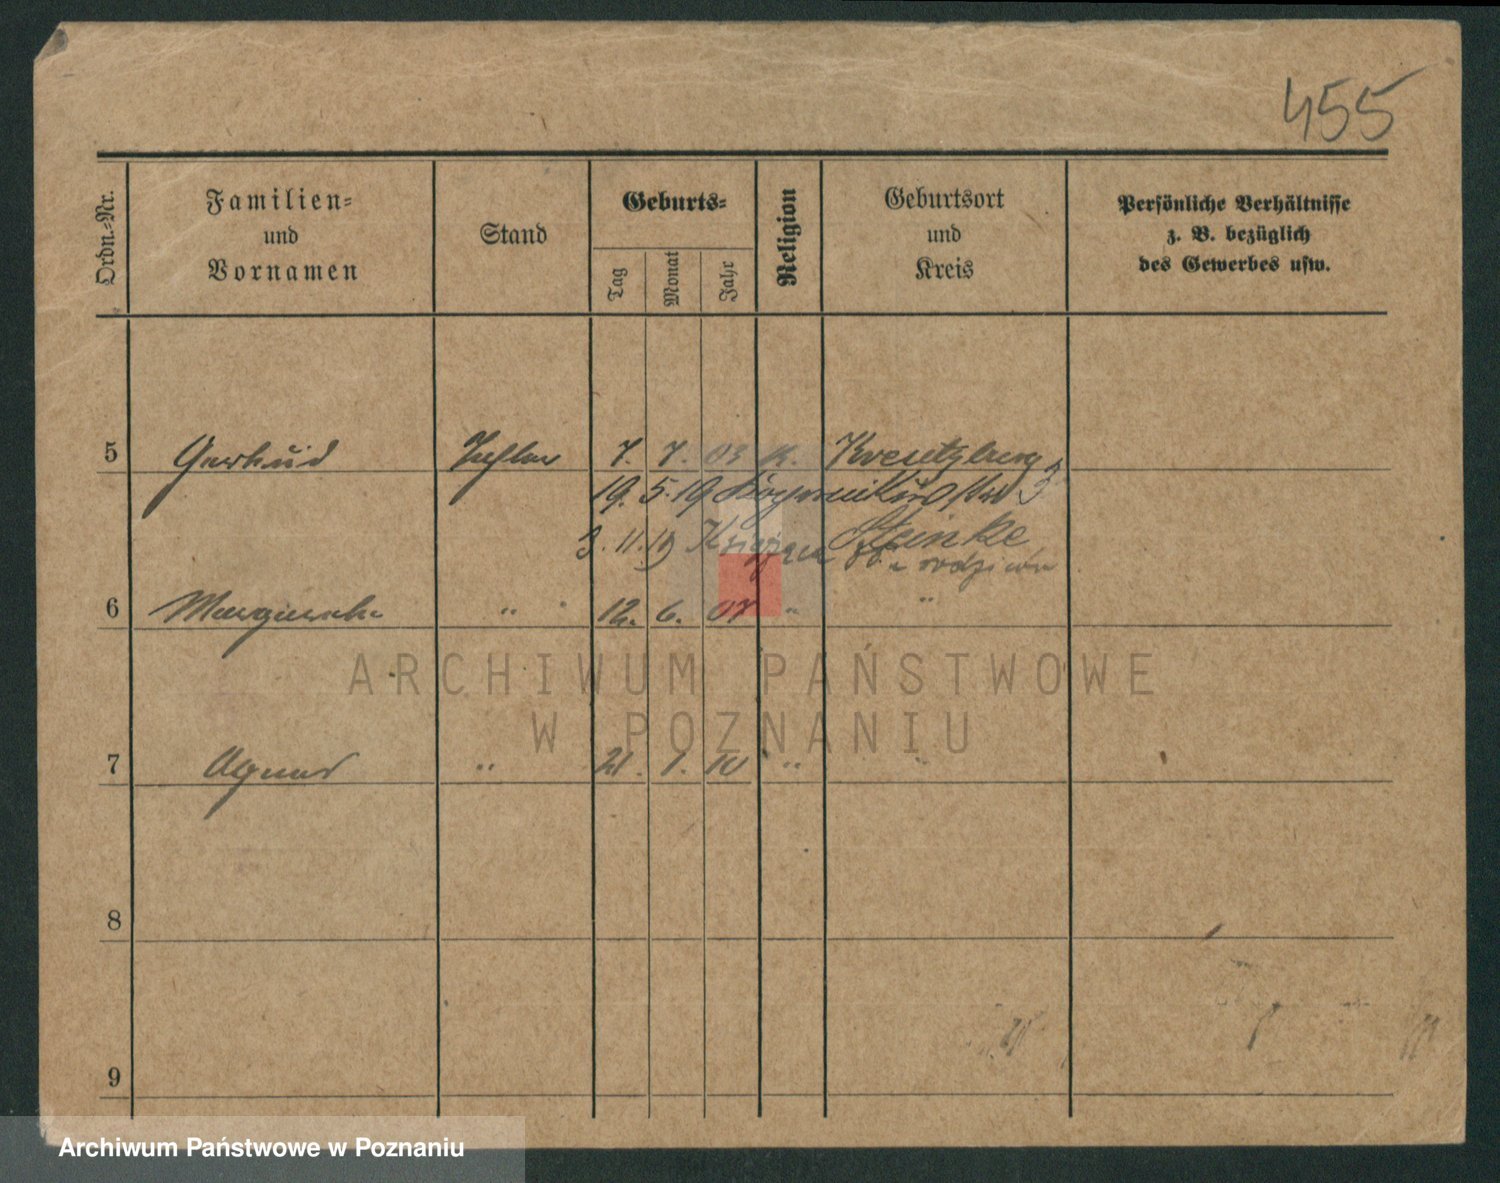 455
Ordn.-Nr.
Familien-
und
Vornamen
Stand
Geburts-
Tag
Monat
Jahr
Religion
Geburtsort
und
Kreis
Persönliche Verhältnisse
z. B. bezüglich
des Gewerbes usw.
5 Gertrud Tochter 7. 7. 03 K. Kreutzburg
19. 5. 19
3. 11. 19 Księża Steinke
rodziców
6 Margarethe " 12. 6. 07 " "
ARCHIWUM PAŃSTWOWE
W POZNANIU
7 Agnes " 21. 1. 10 " "
8
9
Archiwum Państwowe w Poznaniu